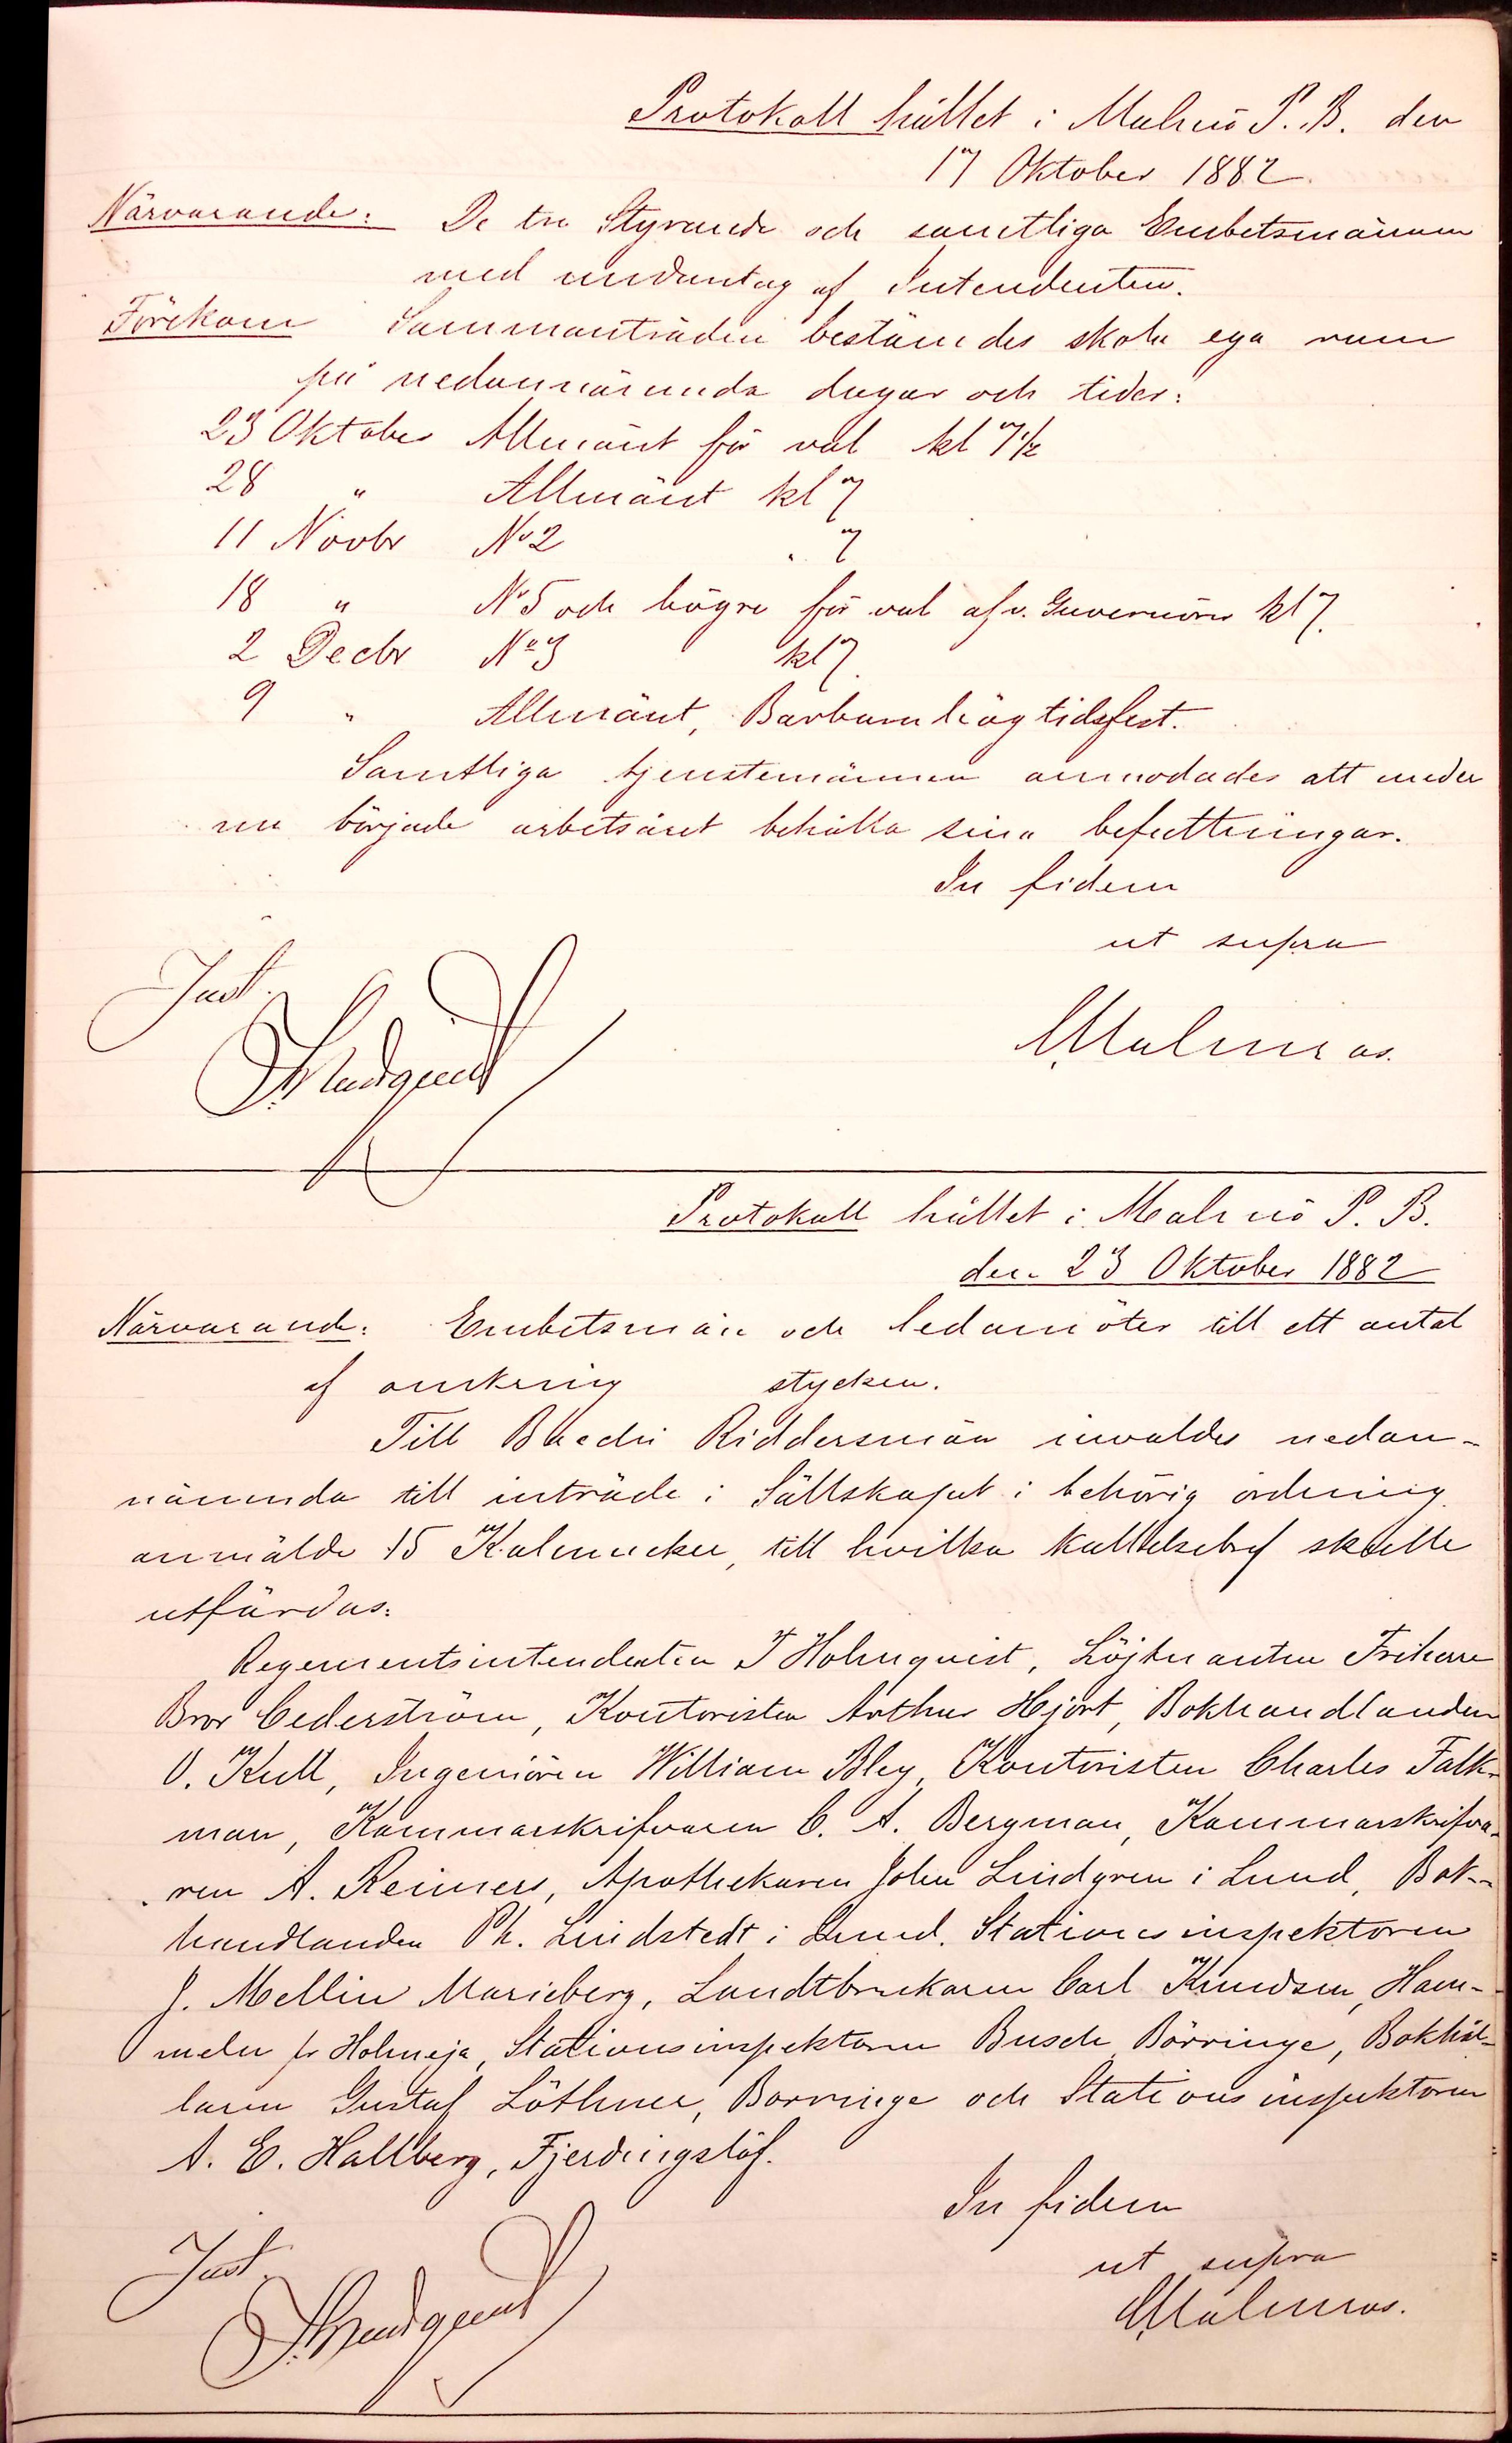 Protokoll hållet i Malmö P. B. den
17 Oktober 1882.
Närvarande: De tre Styrande och samtliga Embetsmännen
med undantag af Intendenten.
Förekom Sammanträden bestämdes skola ega rum
på nedannämnda dagar och tider:
23 Oktober Allmänt för val kl 7 1/2
28 " Allmänt kl 7
11 Novbr No 2 " 7
18 " No 5 och högre för val af v. Guvernörer kl 7.
2 Decbr No 3 kl 7.
9 " Allmänt, Barbara högtidsfest.
Samtliga tjenstemännen anmodades att under
nu började arbetsåret behålla sina befattningar.
In fidem
ut supra
Just.
CMalmros.
Protokoll hållet i Malmö P. B.
den 23 Oktober 1882
Närvarande: Embetsmän och ledamöter till ett antal
af omkring stycken.
Till Riddersmän invaldes nedan-
nämnda till inträde i Sällskapet i behörig ordning
anmälde 15 Kalmucker, till hvilka kallelsebref skulle
utfärdas:
Regementsintendenten T Holmquist, Löjtnanten Friherre
Bror Cederström, Kontoristen Arthur Hjort, Bokhandlanden
O. Kull, Ingeniören William Bley, Kontoristen Charles Falk-
man, Kammarskrifvaren C. A. Bergman, Kammarskrifva-
ren A. Reimers, Apothekaren John Lindgren i Lund, Bok-
handlanden Ph. Lindstedt i Lund. Stationsinspektoren
J. Mellin Marieberg, Landtbrukaren Carl Knudsen, Ham-
meln pr Holmeja, Stationsinspektoren Busch Börringe, Bokhål-
laren Gustaf Löthner, Borringe och Stationsinspektoren
A. E. Hallberg, Fjerdingslöf.
In fidem
ut supra
Just.
CMalmros.